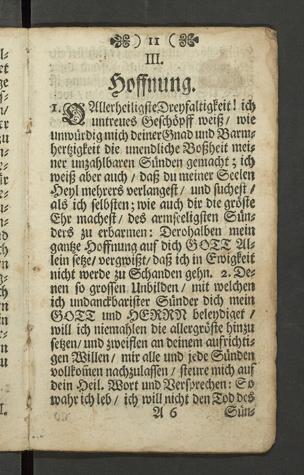 ) 11 (
III.
Hoffnung.
1. O Allerheiligste Dreyfaltigkeit! ich
untreues Geschöpff weiß / wie
unwürdig mich deiner Gnad und Barm-
hertzigkeit die unendliche Boßheit mei-
ner unzahlbaren Sünden gemacht; ich
weiß aber auch / daß du meiner Seelen
Heyl mehrers verlangest / und suchest /
als ich selbsten; wie auch dir die gröste
Ehr machest / des armseeligsten Sün-
ders zu erbarmen: Derohalben mein
gantze Hoffnung auf dich GOTT Al-
lein setze / vergwißt / daß ich in Ewigkeit
nicht werde zu Schanden gehn. 2. De-
nen so grossen Unbilden / mit welchen
ich undanckbarister Sünder dich mein
GOTT und HERRN beleydiget /
will ich niemahlen die allergröste hinzu
setzen / und zweiflen an deinem aufrichti-
gen Willen / mir alle und jede Sünden
vollkom̄en nachzulassen / steure mich auf
dein Heil. Wort und Versprechen: So
wahr ich leb / ich will nicht den Tod des
A 6 Sün-